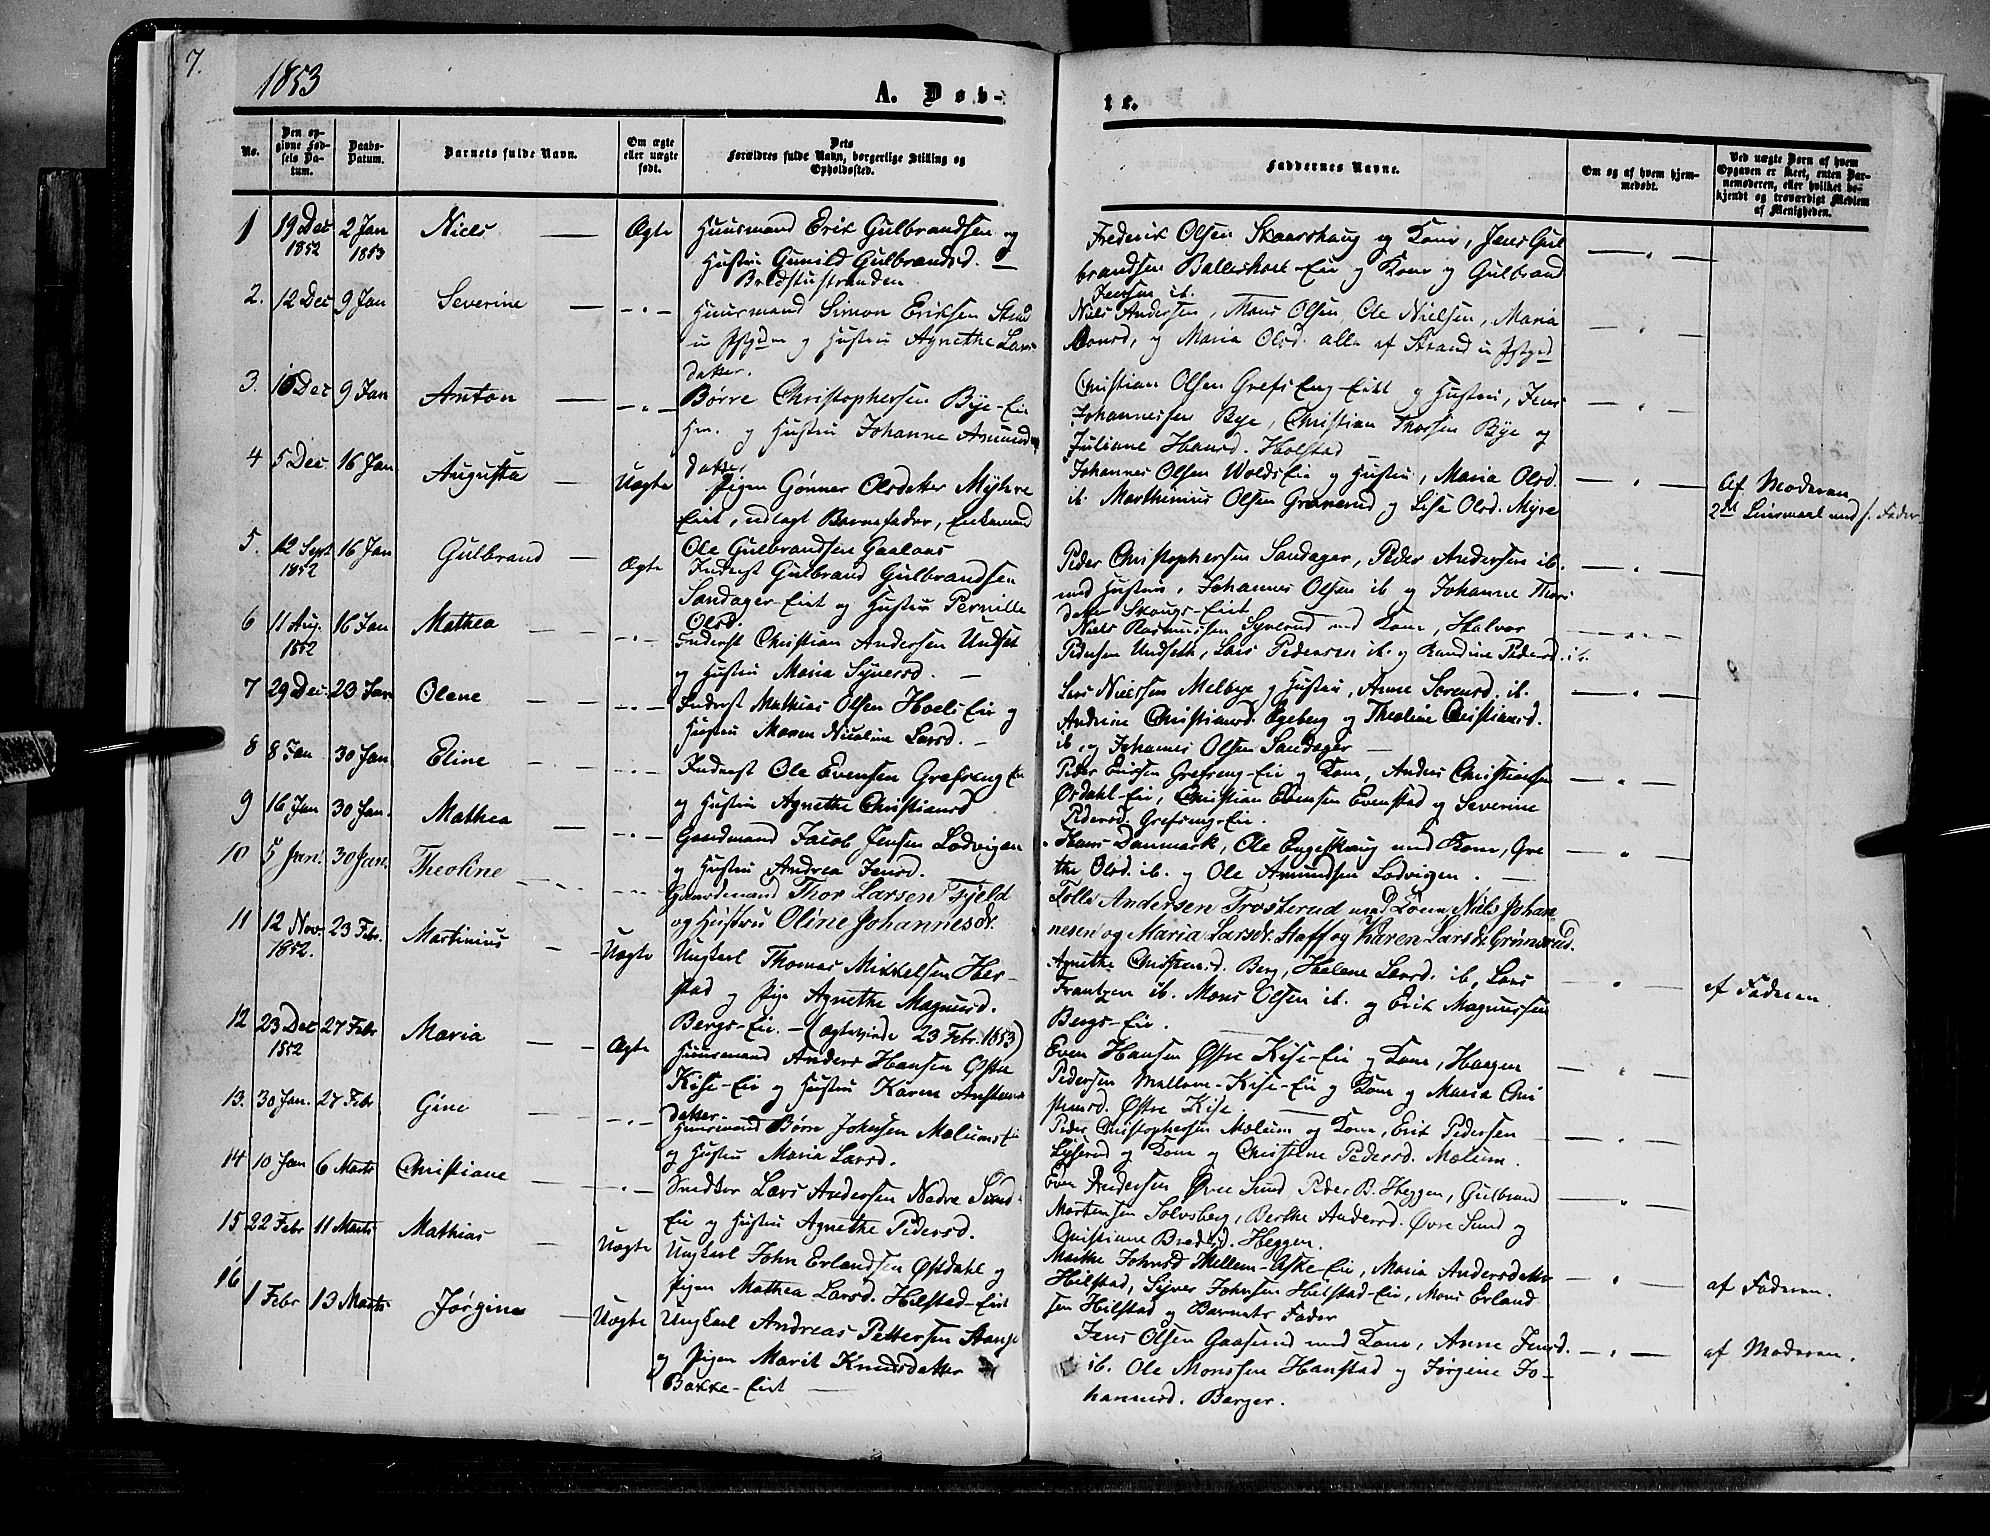 7.
1853
A. Døb-
te.
No.
Den opgivne Fødsels Datum.
Daabs-Datum.
Barnets fulde Navn.
Om ægte eller uægte født.
Dets Forældres fulde Navn, borgerlige Stilling og Opholdssted.
Faddernes Navne.
Om og af hvem hjemmedøbt.
Ved uægte Børn af hvem Opgaven er skeet, enten Barnemoderen, eller hvilket bekjendt og troværdigt Medlem af Menigheden.
1 19 Dec 1852 2 Jan 1853 Niels — Ægte Huusmand Erik Gulbrandsen og
Hustru Gunild Gulbrandsd. —
Bredstustranden
Frederik Olsen Skaarshaug og Kone, Jens Gul
brandsen Balleshoel-Eie og Kone og Gulbrand
Jensen ib.
2. 12 Dec 9 Jan Severine — — " — Huusmand Simon Eriksen Strand
og Hustru Agnethe Lars
datter.
Niels Andersen, Mons Olsen, Ole Nielsen, Maria
Monsd, og Maria Olsd. alle af Strand
3. Dec 9 Jan Anton — — " — Børre Christophersen Bye-Eie
Hm. og Hustru Johanne Amunds
datter
Christian Olsen Grefseng-Eiet og Hustru, Jens
Johannessen Bye, Christian Thorsen Bye og
Juliane Hansd. Holstad
4 5 Dec. 16 Jan Augusta — Uægte Pigen Gønner Olsdatter Myhre
Eiet, udlagt Barnefader, Enkemand
Ole Gulbrandsen Gaalaas
Johannes Olsen Wolds Eie og Hustru, Maria Olsd.
ib. Marthinius Olsen og Lise Olsd. Myre
Af Moderen
2det Leiermaal
5. 12 Sept 1852 16 Jan Gulbrand — Ægte Inderst Gulbrand Gulbrandsen
Sandager-Eiet og Hustru Pernille
Olsd.
Peder Christophersen Sandager, Peder Andersen ib.
med Hustru, Johannes Olsen ib og Johanne Thors
datter Skougs-Eiet
6 11 Aug. 1852 16 Jan Mathea — — — " — Inderst Christian Andersen Undset
og Hustru Maria Syversd. —
Niels Rasmussen Syverud med Kone, Halvor
Pedersen Undseth, Lars Pedersen ib. og Kandine Pedersd. ib.
7 29 Dec. 23 Jan Olene — — — " — Inderst Mathias Olsen Hoels Eie og
Hustru Maren Nicoline Larsd. —
Lars Nielssen Melbye og Hustru, Anne Sørensd. ib.
Andrine Christiansd. Egeberg og Theoline Christiansd.
ib., og Johannes Olsen Sandager —
8 8 Jan 30 Jan Eline — — — " — Inderst Ole Evensen Grefseng Eie
og Hustru Agnethe Christiansd
Peder Grefseng-Eie og Kone, Anders Christiansen
Østdahl-Eie, Christian Evensen Evenstad og Severine
Pedersd. Grefseng-Eie.
9 16 Jan 30 Jan. Mathea — — " — Gaardmand Jacob Jensen Lodvigen
og Hustru Andrea Jensd.
Hans Danmark, Ole Engeskaug med Kone, Gre
the Olsd. ib. og Ole Amundsen Lodvigen. —
10 5 Jan. 30 Jan. Theoline — — Gaardmand Thor Larsen Fjeld
og Hustru Oline Johannesdr.
Tolle Andersen Trosterud med Kone, Niels Johan-
nesen og Maria Larsdr. Staff og Karen Larsdr. Grønnerud.
11 12 Nov 1852. 23 Febr. Martinius — Uægte Ungkarl Thomas Mikkelsen Her-
stad og Pige Agnethe Magnusd.
Bergs-Eie. — (ægtevviede 23 Febr. 1853)
Agnethe Christensd. Berg, Helene Larsd. ib, Lars
Frantzen ib. Mons Olsen ib. og Erik Magnussen
Bergs-Eie.
af Faderen.
12 23 Dec 1852 27 Febr Maria — — Ægte Huusmand Anders Hansen Østre
Kise-Eie og Hustru Karen Anstens
datter.
Even Hansen Østre Kise-Eie og Kone, Haagen
Pedersen Mellem-Kise-Eie og Kone og Maria Chri
stensd. Østre Kise —
13. 30 Jan. 27 Febr Gine — — — " — Huusmand Børre Johnsen Mælums Eie
og Hustru Maria Larsd.
Peder Christophersen Mælum og Kone, Erik Pedersen
og Kone og Christine Pedersd. Mælum.
14 10 Jan 6 Marts Christiane — — " — Snedker Lars Andersen Nedre Sund-
Eie og Hustru Agnethe Pedersd.
Even Andersen Øvre Sund Peder B. Heggen, Gulbrand
Mortensen Solvsberg, Berthe Andersd. Øvre Sund og
Christiane Heggen.
15 22 Febr 11 Marts Mathias — Uægte Ungkarl John Erlandsen Østdahl og
Pigen Mathea Larsd. Hilstad-Eiet
Marthe Johnsd Mellem-Aske-Eie, Maria Andersdatter
Hilstad, Syver Johnsen Hilstad-Eie, Mons Erland
sen Hilstad og Barnets Fader
af Faderen.
16 1 Febr 13 Marts Jørgine — Uægte Ungkarl Andreas Pettersen Stange
og Pigen Marit Knudsdatter
Bakke-Eiet —
Jens Olsen Gaaserud med Kone, Anne Jensd.
ib. Ole Monssen Hanstad og Jørgine Jo-
hannesd. Berger.
af Moderen.